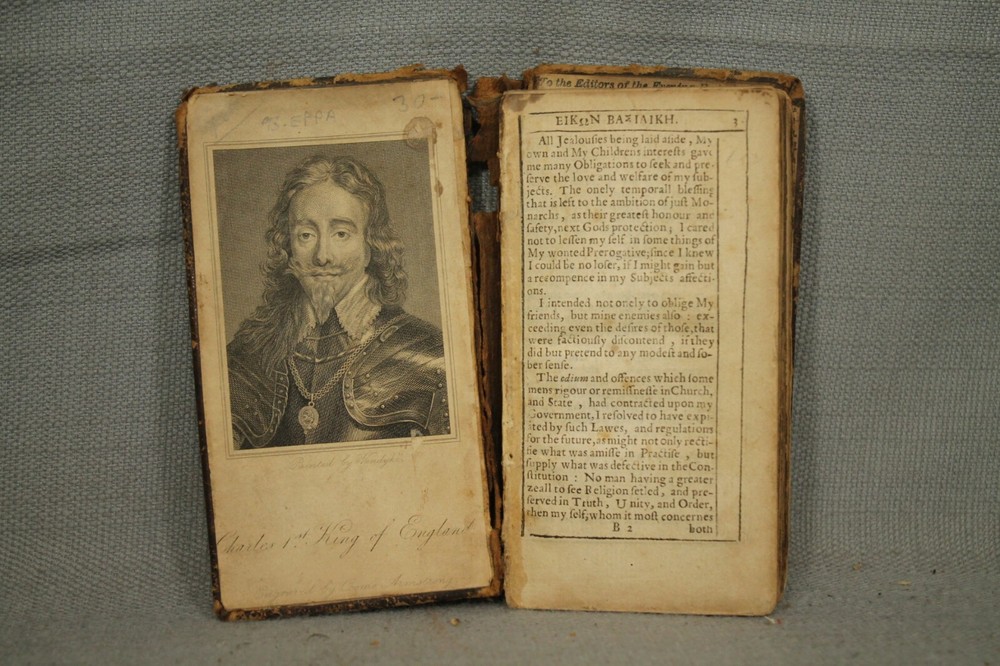 30-
Painted by Vandyke
Charles 1st King of England
To the Editors of the
ΕΙΚωΝ ΒΑΣΙΛΙΚΗ. 3
All Jealousies being laid aside, My
own and My Childrens interests gave
me many Obligations to seek and pre-
serve the love and welfare of my sub-
jects. The onely temporall blessing
that is left to the ambition of just Mo-
narchs, as their greatest honour and
safety, next Gods protection; I cared
not to lessen my self in some things of
My wonted Prerogative; since I knew
I could be no loser, if I might gain but
a recompence in my Subjects affecti-
ons.
I intended not onely to oblige My
friends, but mine enemies also: ex-
ceeding even the desires of those, that
were factiously discontend, if they
did but pretend to any modest and so-
ber sense.
The odium and offences which some
mens rigour or remissnesse in Church,
and State, had contracted upon my
Government, I resolved to have expi-
ated by such Lawes, and regulations
for the future, as might not only recti-
fie what was amisse in Practise, but
supply what was defective in the Con-
stitution: No man having a greater
zeall to see Religion setled, and pre-
served in Truth, Unity, and Order,
then my self, whom it most concernes
B 2 both